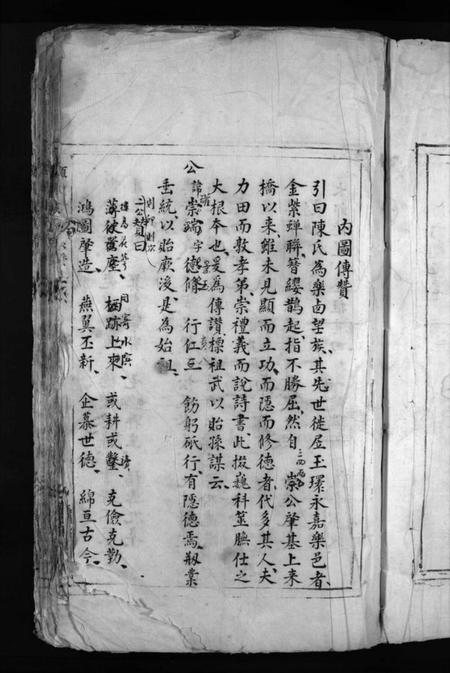 內圖傳贊
引曰陳氏為樂卤望族其先世徙居玉環永嘉樂邑者
金紫蟬聯簪纓鵲起指不勝屈然自崇公肇基上來
橋以來雖未見顯而立功而隱而修德者代多其人夫
力田而敦孝弟崇禮義而說詩書此拔巍科莖膴仕之
大根本也爰為傳讚標祖武以貽孫謀云
公諱崇端字德條行仁三飭躬砥行有隱德焉剏業
垂統以貽厥後是為始祖
公贊曰
薄彼舊塵栖跡上來或耕或鑿克儉克勤
鴻圖肇造燕翼丕新企慕世德綿亘古今